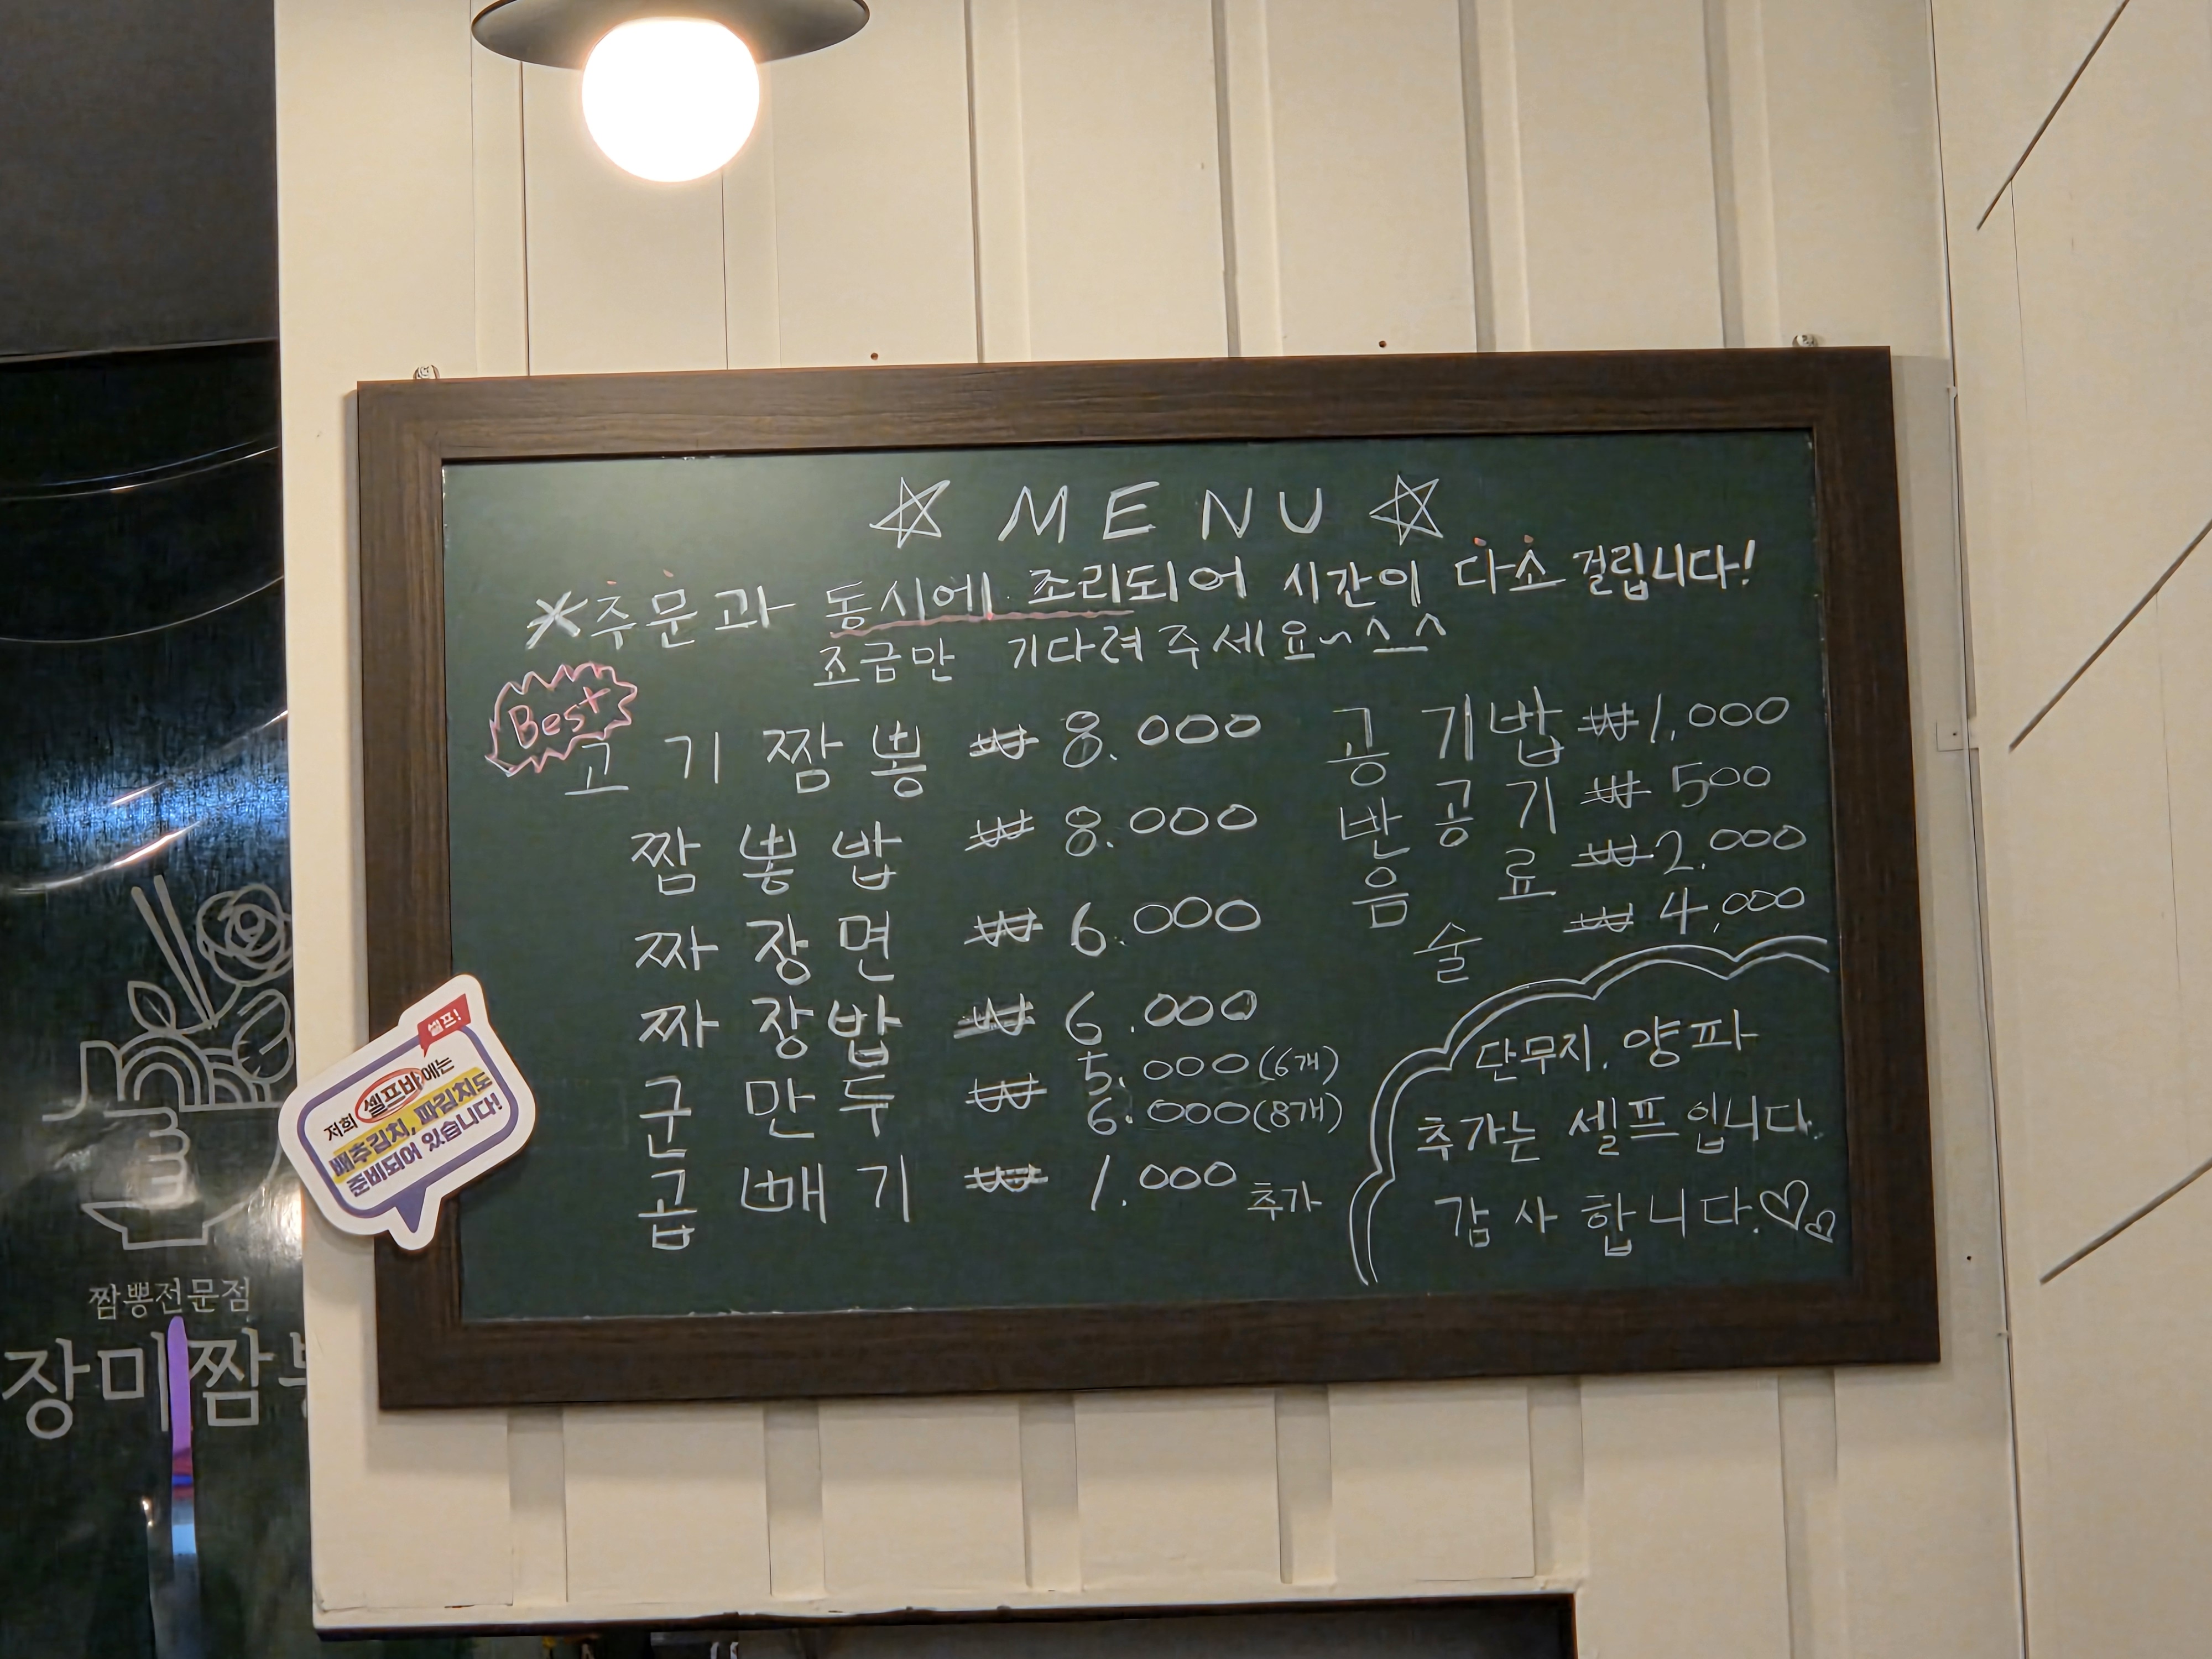 ☆ MENU ☆
※주문과 동시에 조리되어 시간이 다소 걸립니다!
조금만 기다려주세요~^^
Best
고기짬뽕 ₩ 8.000
짬뽕밥 ₩ 8.000
짜장면 ₩ 6.000
짜장밥 ₩ 6.000
군만두 ₩ 5.000(6개)
6.000(8개)
곱빼기 ₩ 1.000 추가
공기밥 ₩1,000
반공기 ₩ 500
음료 ₩2.000
술 ₩ 4,000
단무지, 양파
추가는 셀프입니다.
감사합니다.♡♡
셀프!
저희 셀프바에는
배추김치, 파김치도
준비되어 있습니다!
짬뽕전문점
장미짬